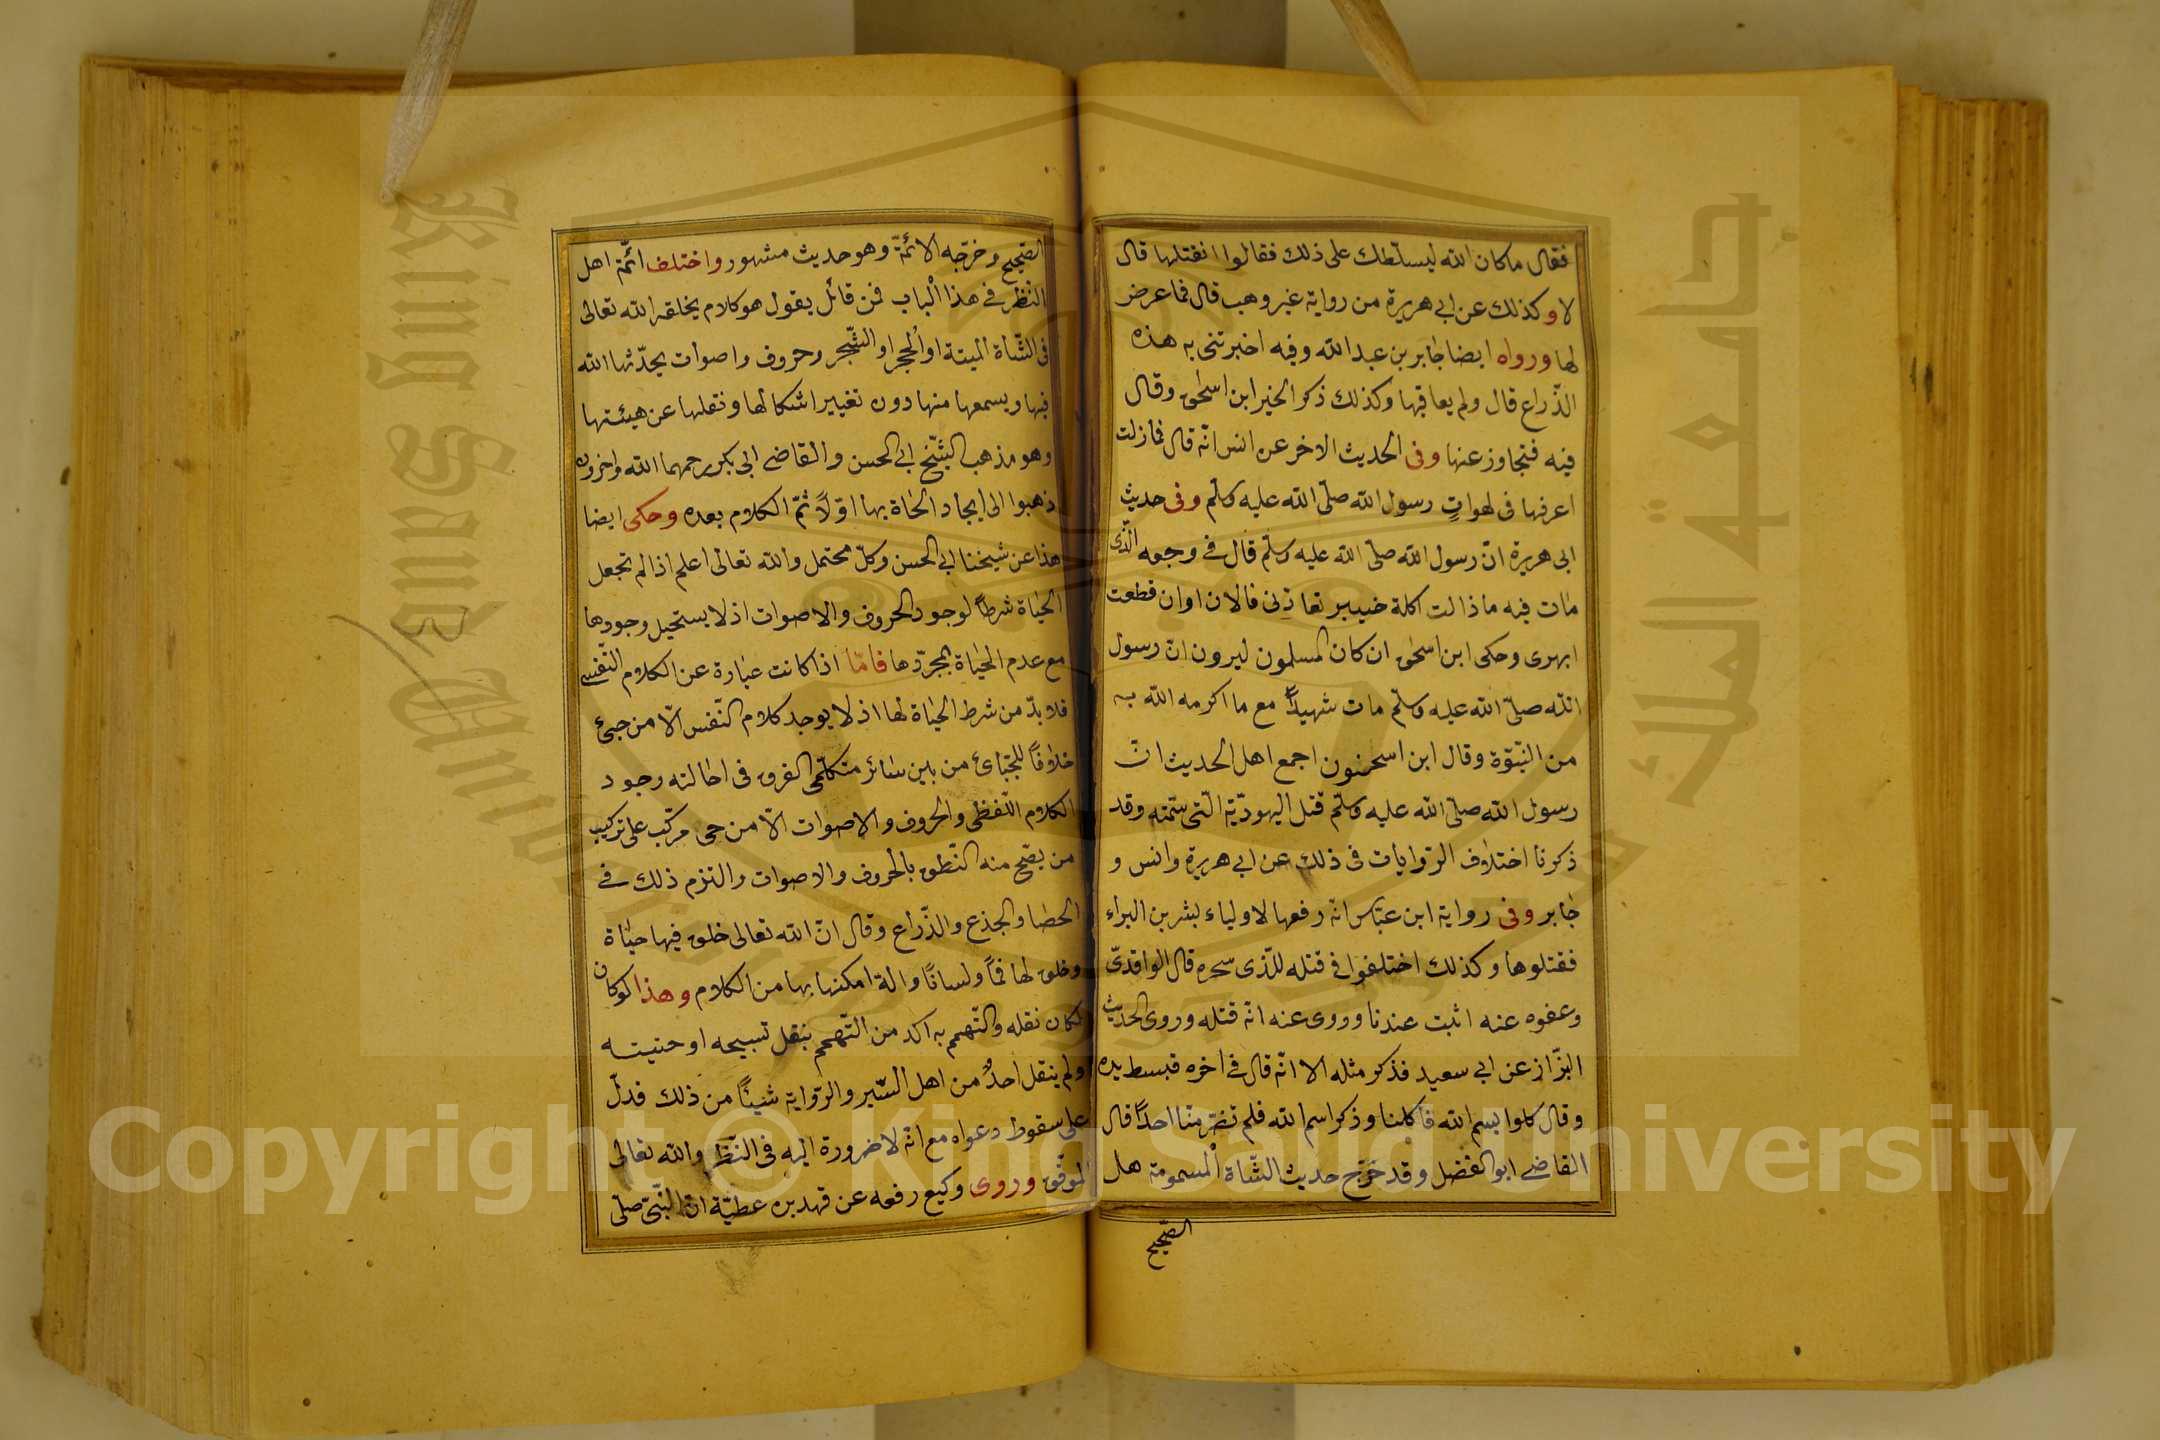 فقال ما كان الله ليسلّطك على ذلك فقالوا انقتلها قال
لا وكذلك عن ابى هريرة من رواية غير وهب قال فما عرض
لها ورواه ايضا جابر بن عبد الله وفيه اخبرتنى به هذه
الذّراع قال ولم يعاقبها وكذلك ذكر الخبر ابن اسحق وقال
فيه فتجاوز عنها وفى الحديث الاخر عن انس انّه قال فما زلت
اعرفها فى لهوات رسول الله صلّى الله عليه وسلّم وفى حديث
ابى هريرة انّ رسول الله صلّى الله عليه وسلّم قال فى وجعه الّذى
مات فيه ما ذالت اكلة خيبر تعاذنى فالان اوان قطعت
ابهرى وحكى ابن اسحق ان كان المسلمون ليرون انّ رسول
الله صلّى الله عليه وسلّم مات شهيدًا مع ما اكرمه الله به
من النّبوّة وقال ابن اسحنون اجمع اهل الحديث انّ
رسول الله صلّى الله عليه وسلّم قتل اليهوديّة الّتى سمّته وقد
ذكرنا اختلاف الرّوايات فى ذلك عن ابى هريرة وانس و
جابر وفى رواية ابن عبّاس انّه رفعها لاولياء بشر بن البراء
فقتلوها وكذلك اختلفوا فى قتله للّذى سحره قال الواقدىّ
وعفوه عنه اثبت عندنا وروى عنه انّه قتله وروى الحديث
البزّاز عن ابى سعيد فذكر مثله الا انّه قال فى اخره فبسط يده
وقال كلوا بسم الله فاكلنا وذكر اسم الله فلم تضرّ منّا احدًا قال
القاضى ابو الفضل وقد خرّج حديث الشّاة المسمومة هل
الصّحيح
الصّحيح وخرّجه الائمّة وهو حديث مشهور واختلف ائمّة اهل
النّظر فى هذا الباب فمن قائل يقول هو كلام يخلقه الله تعالى
فى الشّاة الميتة او الحجر او الشّجر وحروف واصوات يحدّثها الله
فيها ويسمعها منها دون تغيير اشكالها ونقلها عن هيئتها
وهو مذهب الشّيخ ابى الحسن والقاضى ابى بكر رحمهما الله واخرون
ذهبوا الى ايجاد الحاة بها اوّلاً ثمّ الكلام بعده وحكى ايضا
هذا عن شيخنا ابى الحسن وكلّ محتمل والله تعالى اعلم اذا لم تجعل
الحياة شرطًا لوجود الحروف والاصوات اذ لا يستحيل وجودها
مع عدم الحياة بمجرّدها فامّا اذا كانت عبارة عن الكلام النّفسى
فلا بدّ من شرط الحياة لها اذ لا يوجد كلام النّفس الّا من حىّ
خلافًا للجبّائ من بين سائر متكلّمى الفرق فى احالته وجود
الكلام اللّفظى والحروف والاصوات الّا من حى مركّب على تركيب
من يصّح منه النّطق بالحروف والاصوات والتزم ذلك فى
الحصا والجذع والذّراع وقال انّ الله تعالى خلق فيها حياة
وخلق لها فمًا ولسانًا والة امكنها بها من الكلام وهذا لو كان
لكان نقله والتّهمم به اكد من التّهمم بنقل تسبيحه او حنينه
ولم ينقل احدٌ من اهل السّير والرّواية شيئًا من ذلك فدلّ
على سقوط دعواه مع انّه لا ضرورة اليه فى النّظر والله تعالى
الموفّق وروى وكيع رفعه عن فهد بن عطيّة انّ النّبىّ صلّى
Copyright © King Saud University
King Saud University
جامعة الملك سعود